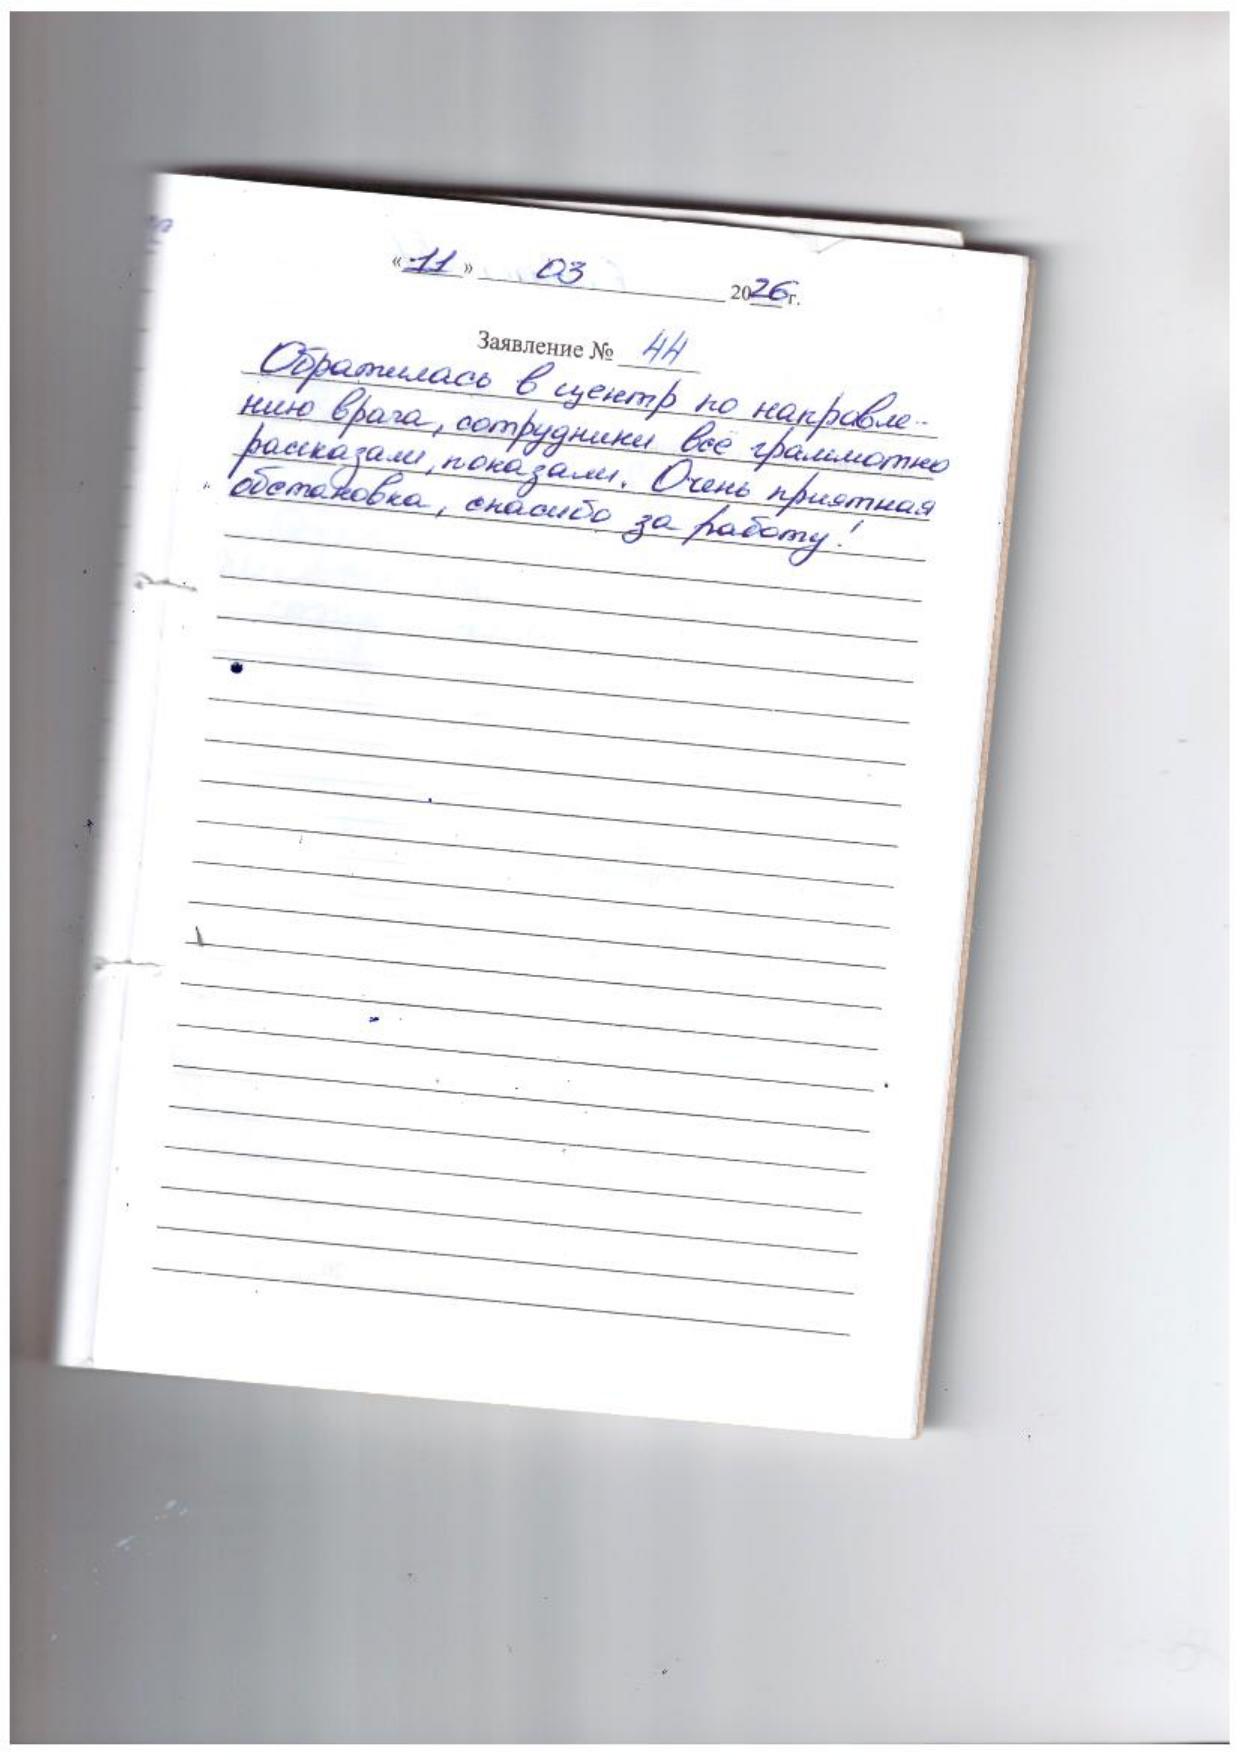 «11» 03 2026г.
Заявление № 44
Обратилась в центр по направле-
нию врача, сотрудники всё граммотно
рассказали, показали. Очень приятная
обстановка, спасибо за работу!